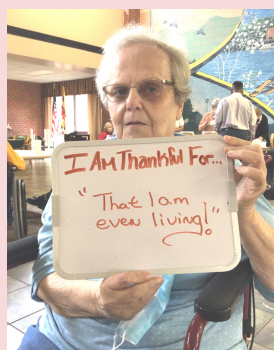 I Am Thankful For...
"That I am
even living!"